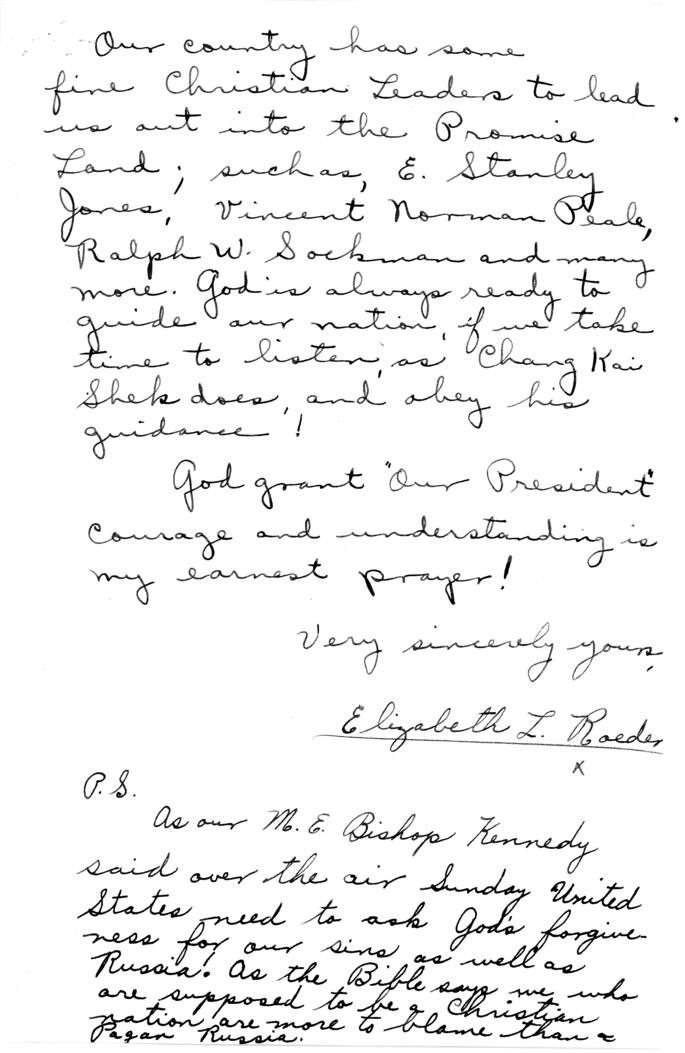 Our country has some
fine Christian Leaders to lead
us out into the Promise
Land; such as, E. Stanley
Jones, Vincent Norman Peale,
Ralph W. Sockman and many
more. God is always ready to
guide our nation, if we take
time to listen, as Chang Kai
Shek does, and obey his
guidance!
God grant "Our President"
courage and understanding is
my earnest prayer!
Very sincerely yours,
Elizabeth L. Roeder
x
P.S.
As our M. E. Bishop Kennedy
said over the air Sunday United
States need to ask God's forgive-
ness for our sins as well as
Russia. As the Bible says we who
are supposed to be a Christian
nation, are more to blame than a
Pagan Russia.